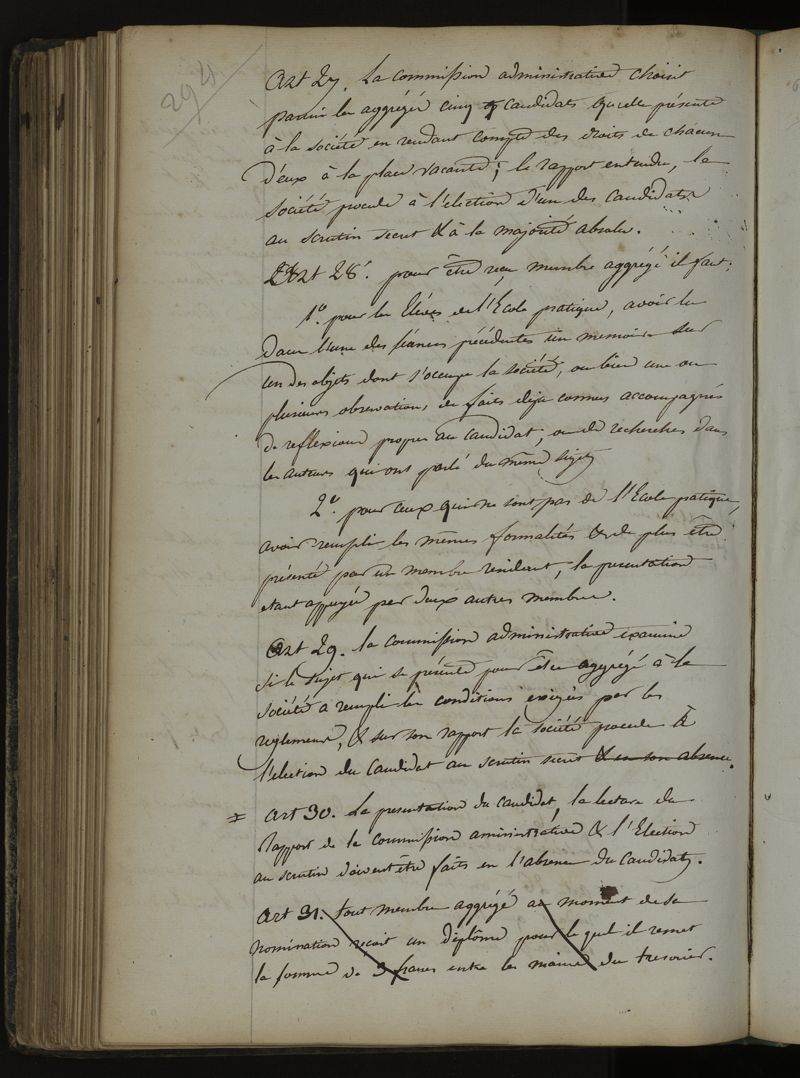 294
Art 27. La commission administrative choisit
parmi les aggrégés cinq candidats qu'elle présente
à la société en rendant compte des droits de chacun
d'eux à la place vacante; le rapport entendu, la
société procede à l'élection d'un des candidats
au scrutin secret & à la majorité absolue.
Art 28. pour être reçu membre aggrégé il faut:
1º. pour les Elèves de l'Ecole pratique, avoir lu
dans l'une des séances précédentes un memoire sur
un des objets dont s'occupe la société, ou bien une ou
plusieurs observations, de faits déja connus accompagnés
de reflexions propres au candidat, ou de recherches dans
les auteurs qui ont parlé du même sujet
2º. pour ceux qui ne sont pas de l'Ecole pratique,
avoir rempli les mêmes formalités & de plus être
présenté par un membre resident, la presentation
etant appuyée par deux autres membres.
Art 29. la commission administrative examine
si le sujet qui se présente pour être aggrégé à la
société a rempli les conditions exigées par les
reglemens, & sur son rapport la société procede à
l'election du candidat au scrutin secret & en son absence.
Art 30. La presentation du candidat, la lecture du
rapport de la commission aministrative & l'Election
au scrutin doivent être faits en l'absence du candidat.
Art 31. tout membre aggrégé au moment de sa
nomination reçoit un diplôme pour lequel il remet
la somme de 3 francs entre les mains du tresorier.